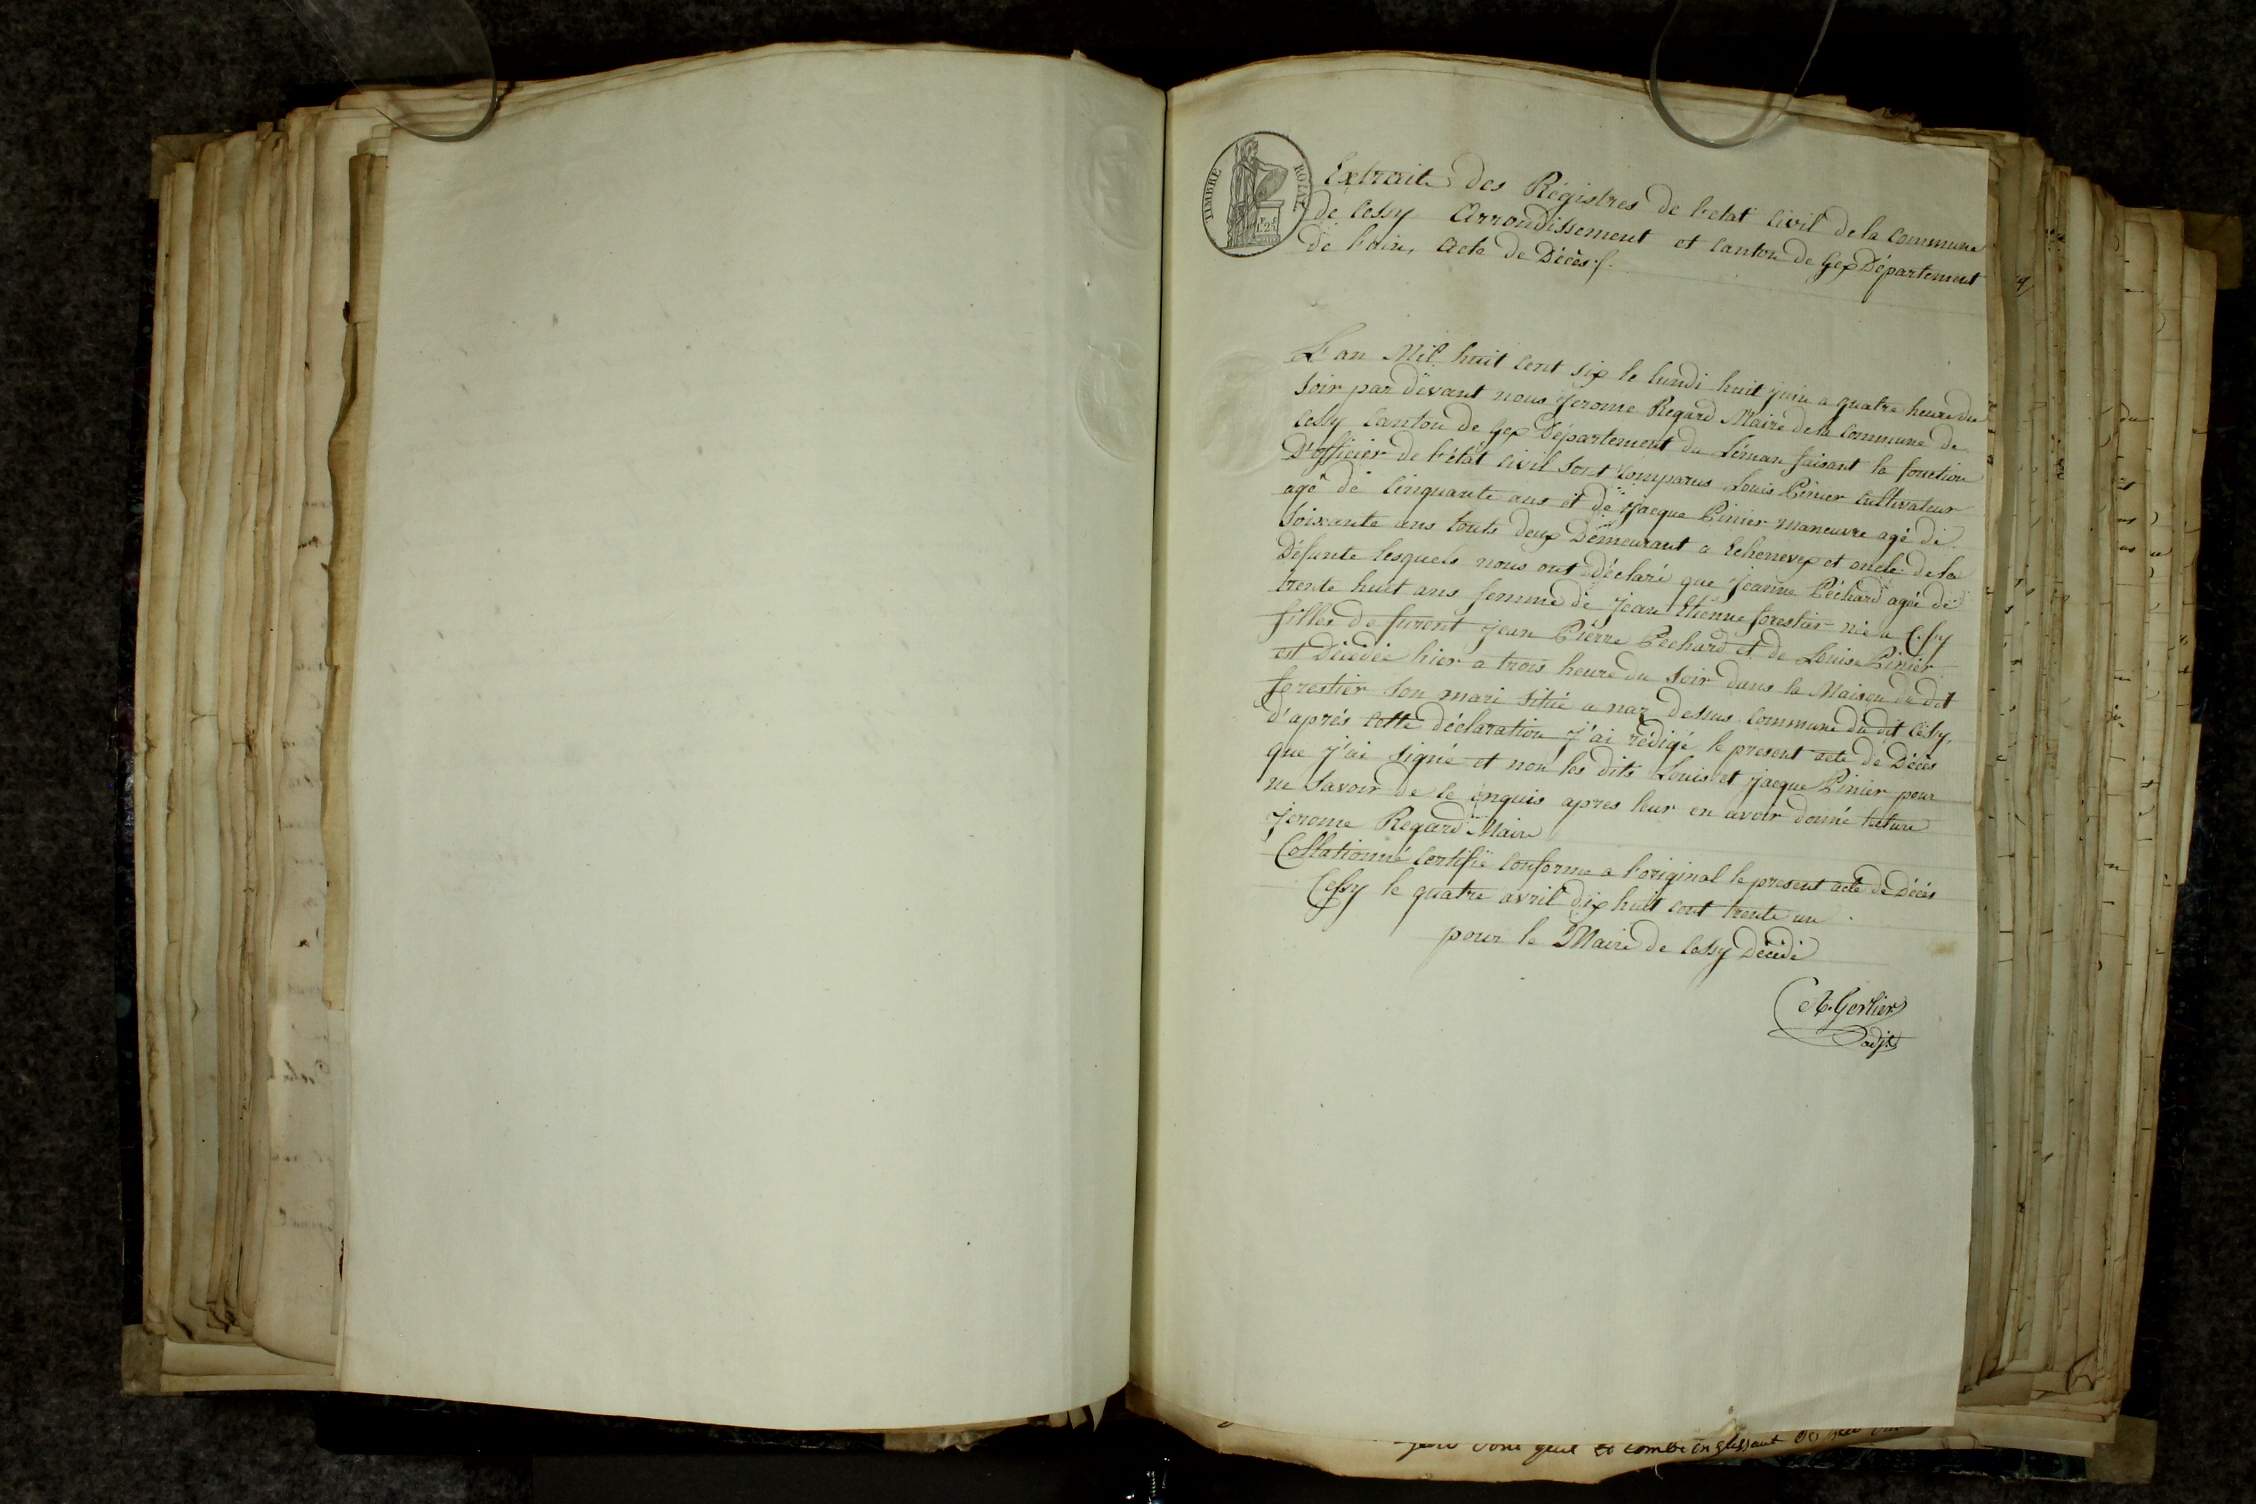 TIMBRE ROYAL
Extrait des Régistres de l'etat civil de la commune
de Cessy Arrondissement et canton de Gex Département
de l'ain, Acte de Décès.
L'an Mil huit cent six le lundi huit juin a quatre heure du
soir par devant nous Jerome Regard Maire de la commune de
Cessy canton de Gex Département du Léman faisant la fonction
D'officier de l'état civil sont comparus Louis Pinier cultivateur
agé de cinquante ans et de Jacque Pinier maneuvre agé de
soixante ans touts deux Démeurant a Echenevex et oncle de la
Défunte lesquels nous ont déclaré que Jeanne Péchard agée de
trente huit ans femme de Jean Etienne forestier née a Cessy
filles de furent Jean Piérre Péchard et de Louise Pinier
est Décedée hier a trois heure du soir dans la Maison du dit
forestier son mari sitié a naz dessus commune du dit Cessy,
d'aprés cette déclaration j'ai rédigé le present acte de Décès
que j'ai signé et non les dits Louis et Jacque Pinier pour
ne savoir de le enquis apres leur en avoir donné lecture
Jerome Regard Maire
Collationné certifié conforme a l'original le present acte de Décès
Cessy le quatre avril dix huit cent trente un
pour le Maire de Cessy Décédé
A. Gerlier
adjt